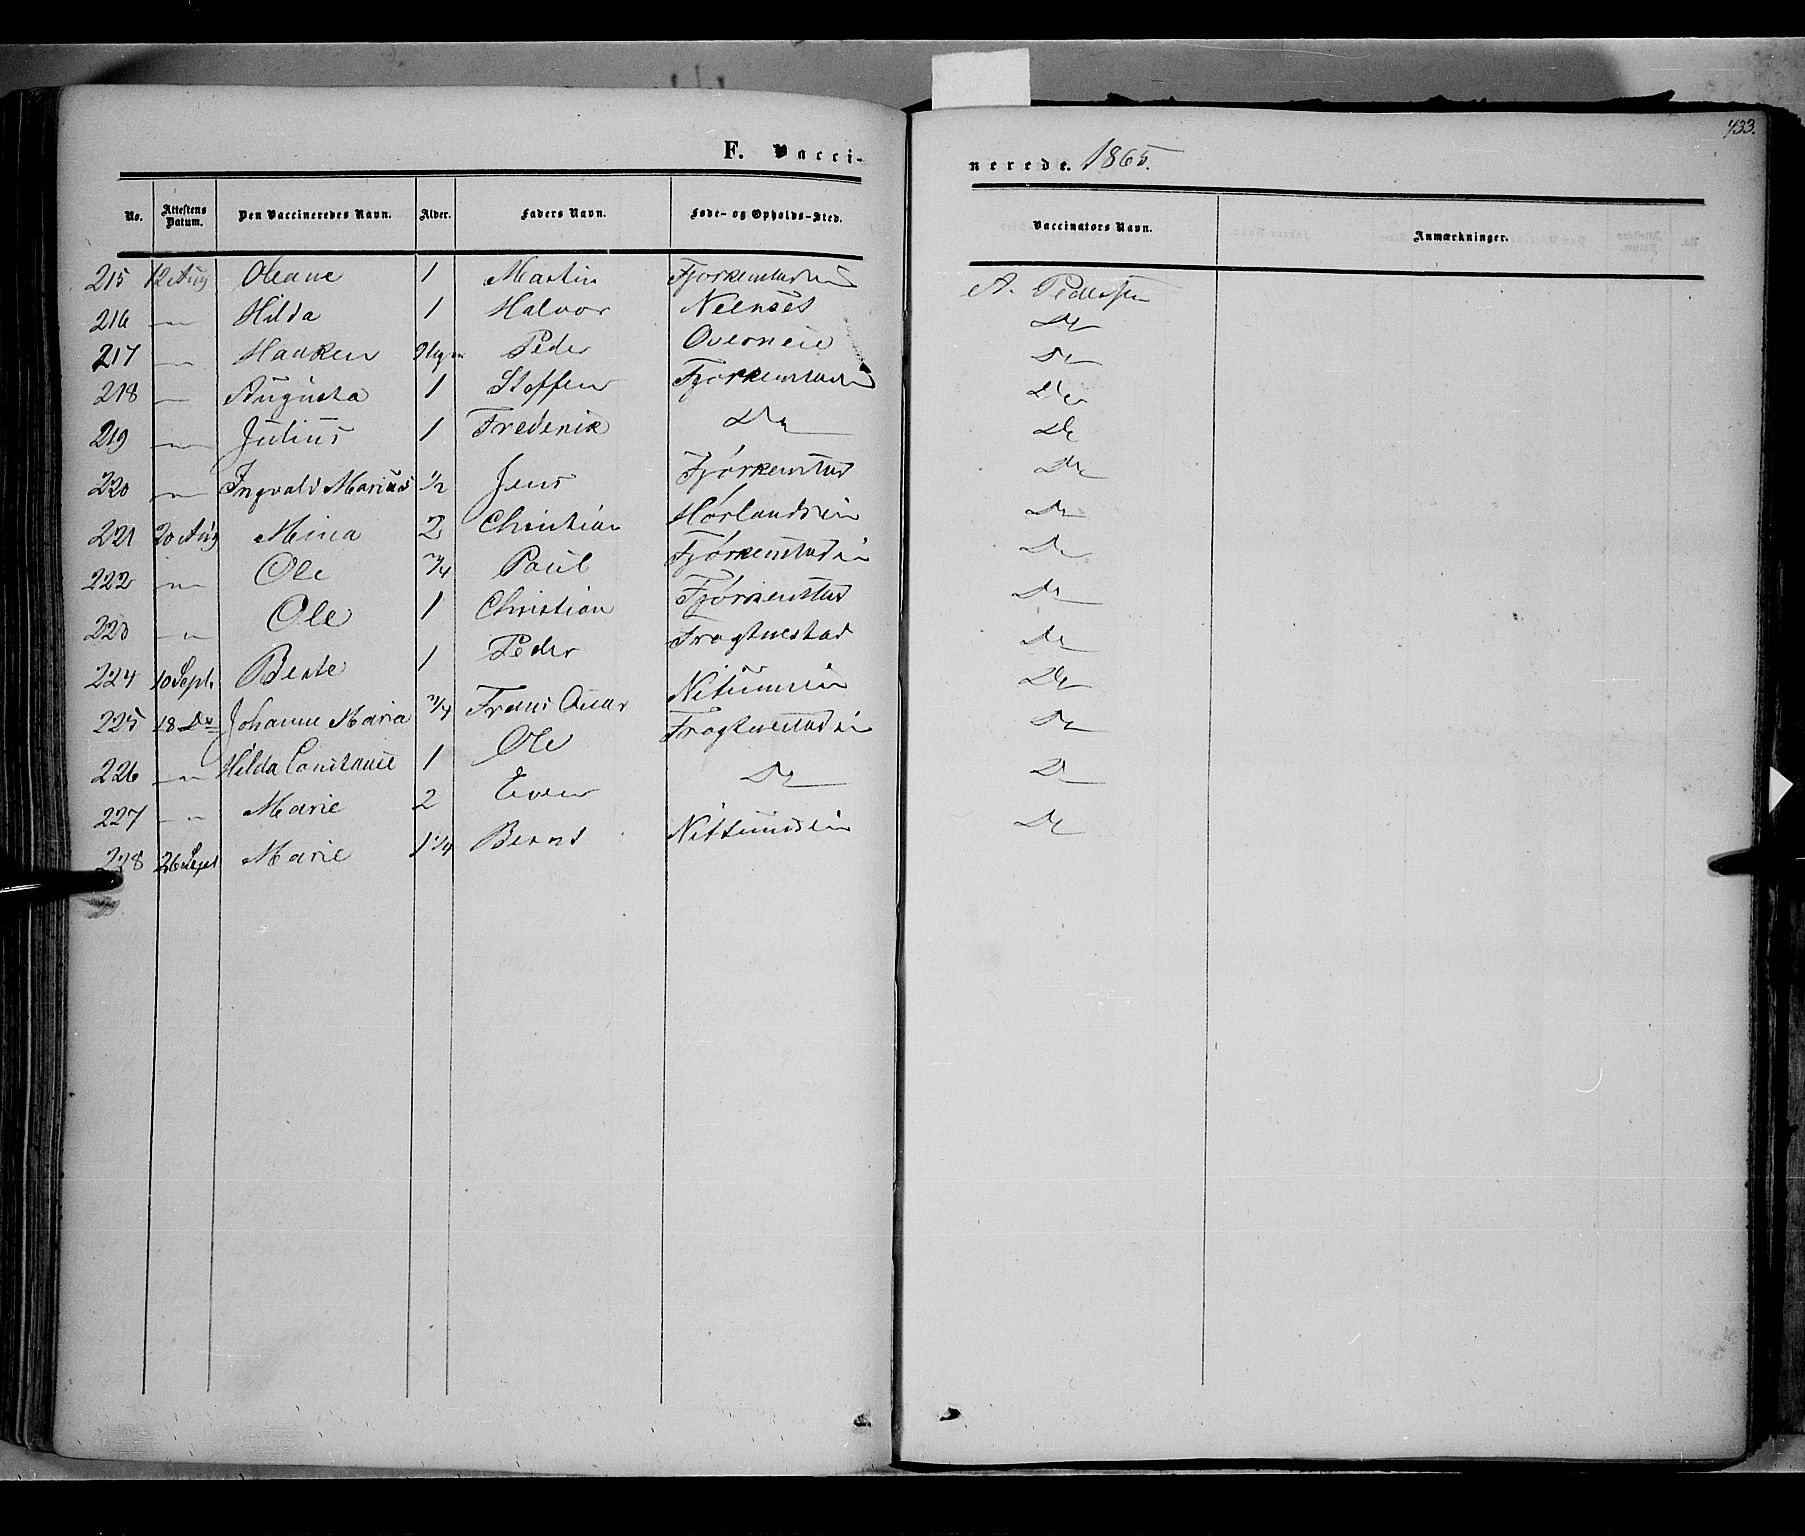 433.
F. Vaccinerede. 1865.
No. Attestens Datum. Den Vaccineredes Navn. Alder. Faders Navn. Føde- og Opholds-Sted. Vaccinators Navn. Anmærkninger.
215 12 Aug Oleane 1 Martin Fjørkenstadei A. Pedersen
216 — Hilda 1 Halvor Neenset Do
217 — Haaken Peder Overneie Do
218 — Augusta 1 Steffen Fjørkenstadei Do
219 — Julius 1 Frederik Do Do
220 — Ingvald Marius 1/2 Jens Fjørkenstad Do
221 20 Aug Mina 2 Christian Hørlandseie Do
222 — Ole 3/4 Paul Fjørkenstadeie Do
223 — Ole 1 Christian Fjørkenstad Do
224 10 Sept. Beate 1 Peder Frogtnestad Do
225 18 Do Johanne Maria 3/4 Frans Oscar Do
226 — Hilda Constance 1 Ole Frogtnestadeie Do
227 — Marie 2 Even Do Do
228 26 Sept Marie 1 1/4 Bernt Nittundseie Do